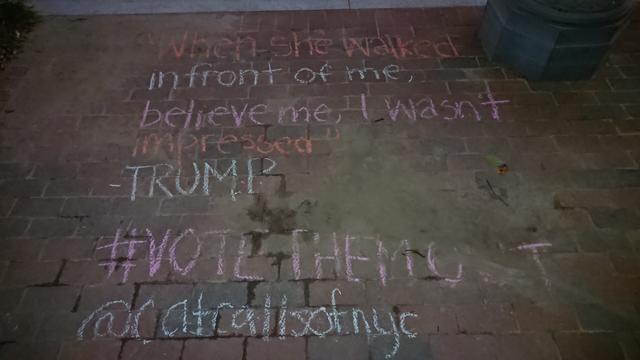 "When she walked
in front of me,
believe me, I wasn't
impressed"
-TRUMP
#VOTETHEMOUT
@catcallsofnyc